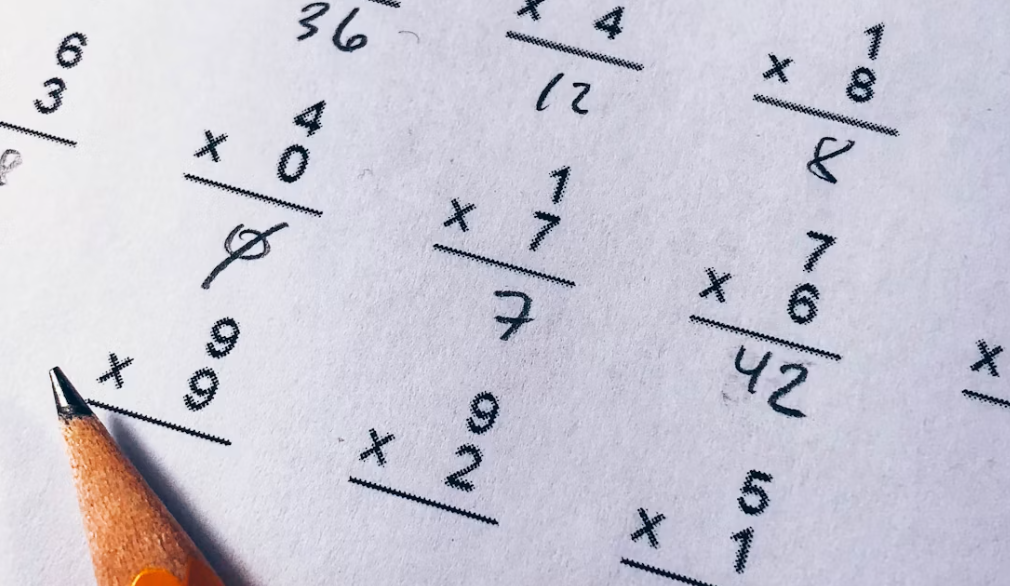 6
3
36
x 4
12
1
x 8
8
4
x 0
0
1
x 7
7
7
x 6
42
9
x 9
9
x 2
5
x 1
x